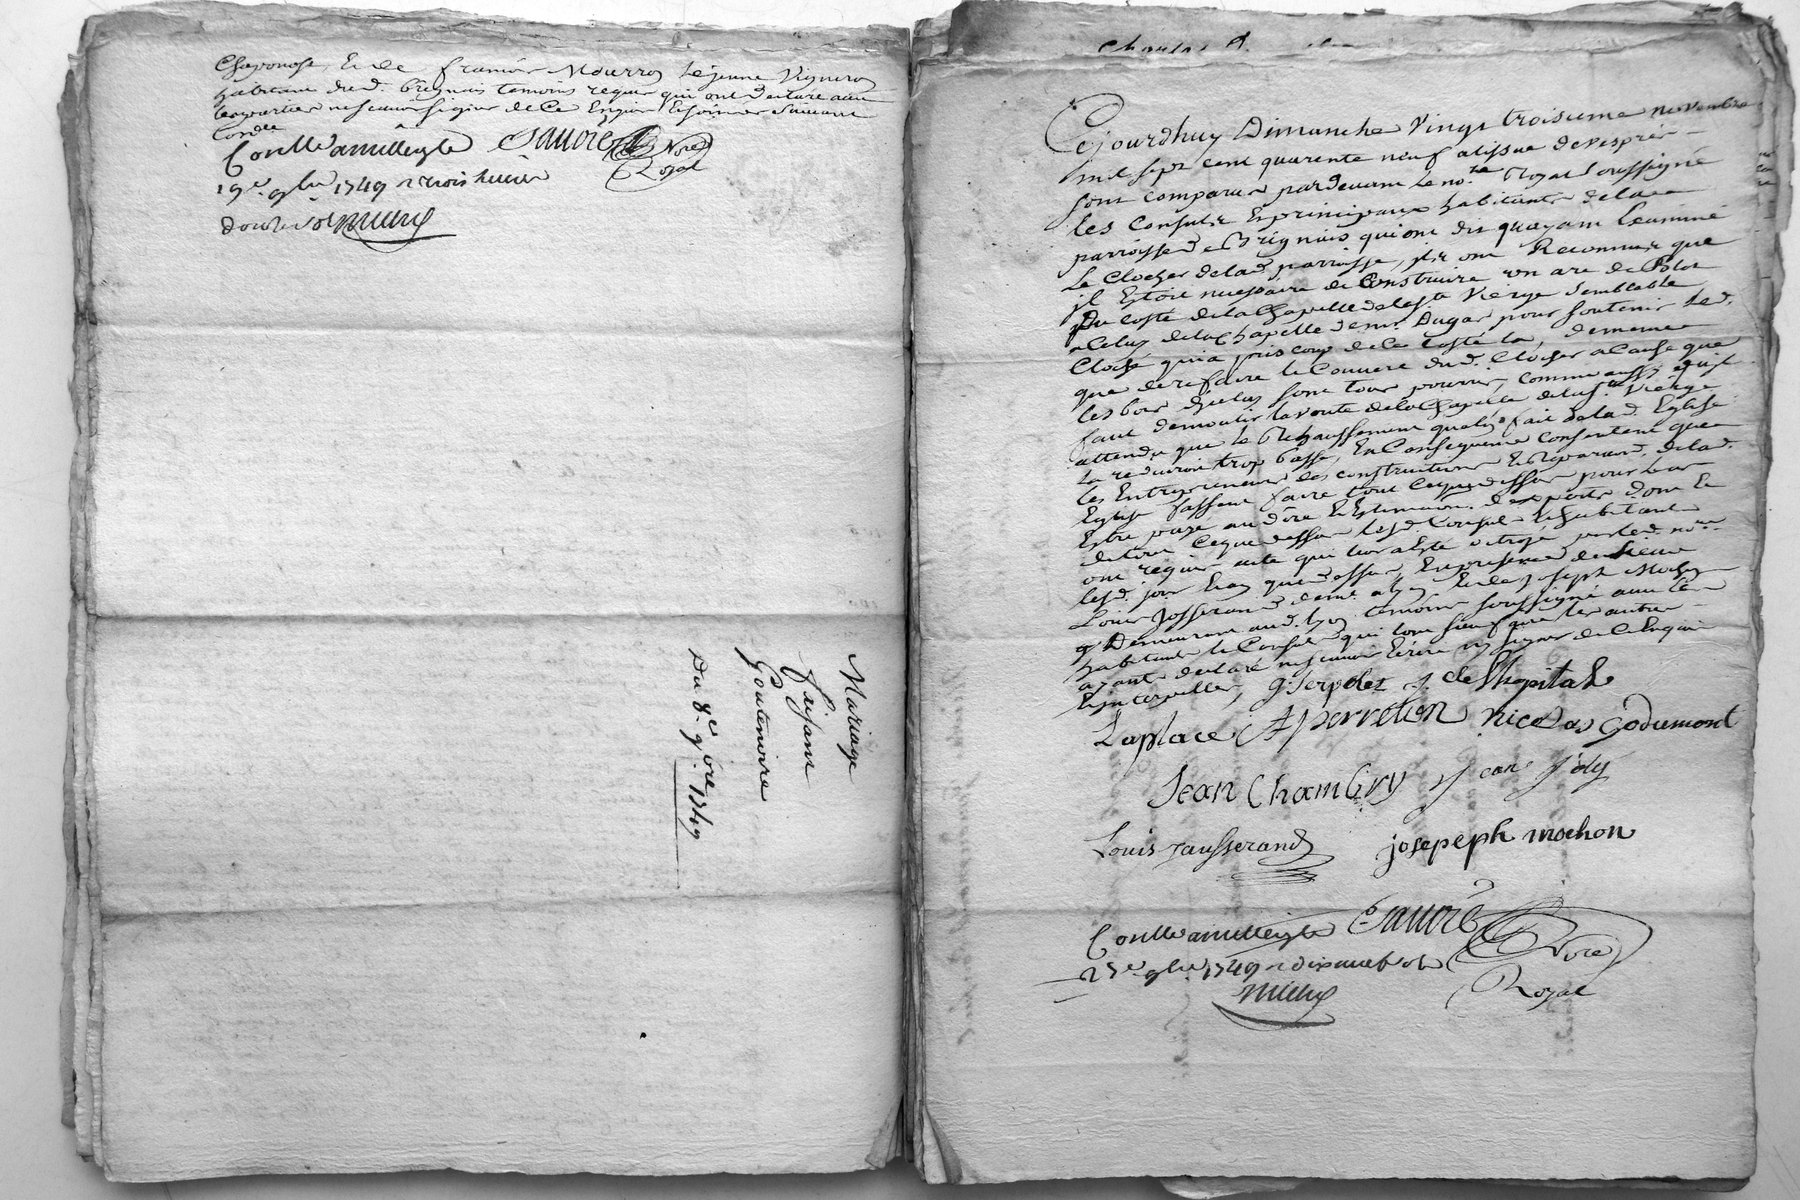 Chaponost, Et de francois Mourron le jeune Vigneron
habitant dud. brignais temoins requis qui ont declaré avec
les parties ne scavoir signer de ce Enquis Et sommés suivant
lord.ce
Conllé a millery le Sauore Nore
19e 9bre 1749 r trois livres Royal
douze sols
Mariage
Du 8.e 9.bre 1749
Cejourdhuy Dimanche vingt troisieme novembre
mil sept cent quarente neuf a lissue de vespres
sont comparus pardevant le no.re Royal soussigné
les Consuls Et principaux habitants de la
parroisse de Brignais qui ont dit quayant Examiné
Le Clocher de lad. parroisse, ils ont Reconnus que
jl Estoit necessaire de Construire un arc de
Du costé de la Chapelle de la s.te Vierge semblable
a Celuy de la Chapelle de mr. Dugas pour soutenir led.
Cloché qui a pris coup de ce costé la, de meme
que de refaire le Couvert dud. Clocher a Cause que
les bois dicelui sont tous pourris, comme aussy quil
faut demolir la voute de la Chapelle de la s.te Vierge
attendu que le Rehaussement quon a fait de lad. Eglise
la rediroit trop basse, En Consequence consentent que
les Entrepreneurs des constructions Et Reparaons. de lad.
Eglise fassent faire tout ce que dessus pour leur
Estre payé au dire Et Estimaon. dexperts dont Et
de tout ce que dessus lesd. Consuls Et habitants
ont requis acte qui leur a Esté octroyé par led. no.re
lesd. jour Et an que dessus, En presence de sieur
Louis Josserand dem.t a lyon Et de s.r joseph Mochon
g. Demeurant aud. lyon temoins soussignés avec les
habitants le Consul qui sont sieuf que les autres
ayants declaré ne scavoir Ecrire ny signer de ce Enquis
Et interpellés, g. serpolet J. de lhopital
Laplace A perreton Nicolas godumont
Jean Chambry Jean Joly
Louis Jausserand josepeph mochon
Conllé a millery le Sauore Nore
23e 9bre 1749 r dix neuf sols Royal